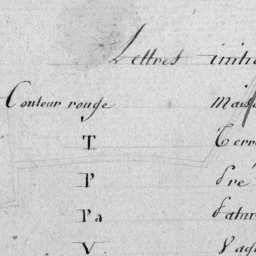 Lettres initi
Couleur rouge Mais
T Terr
P Pré
Pa Patur
V Vag